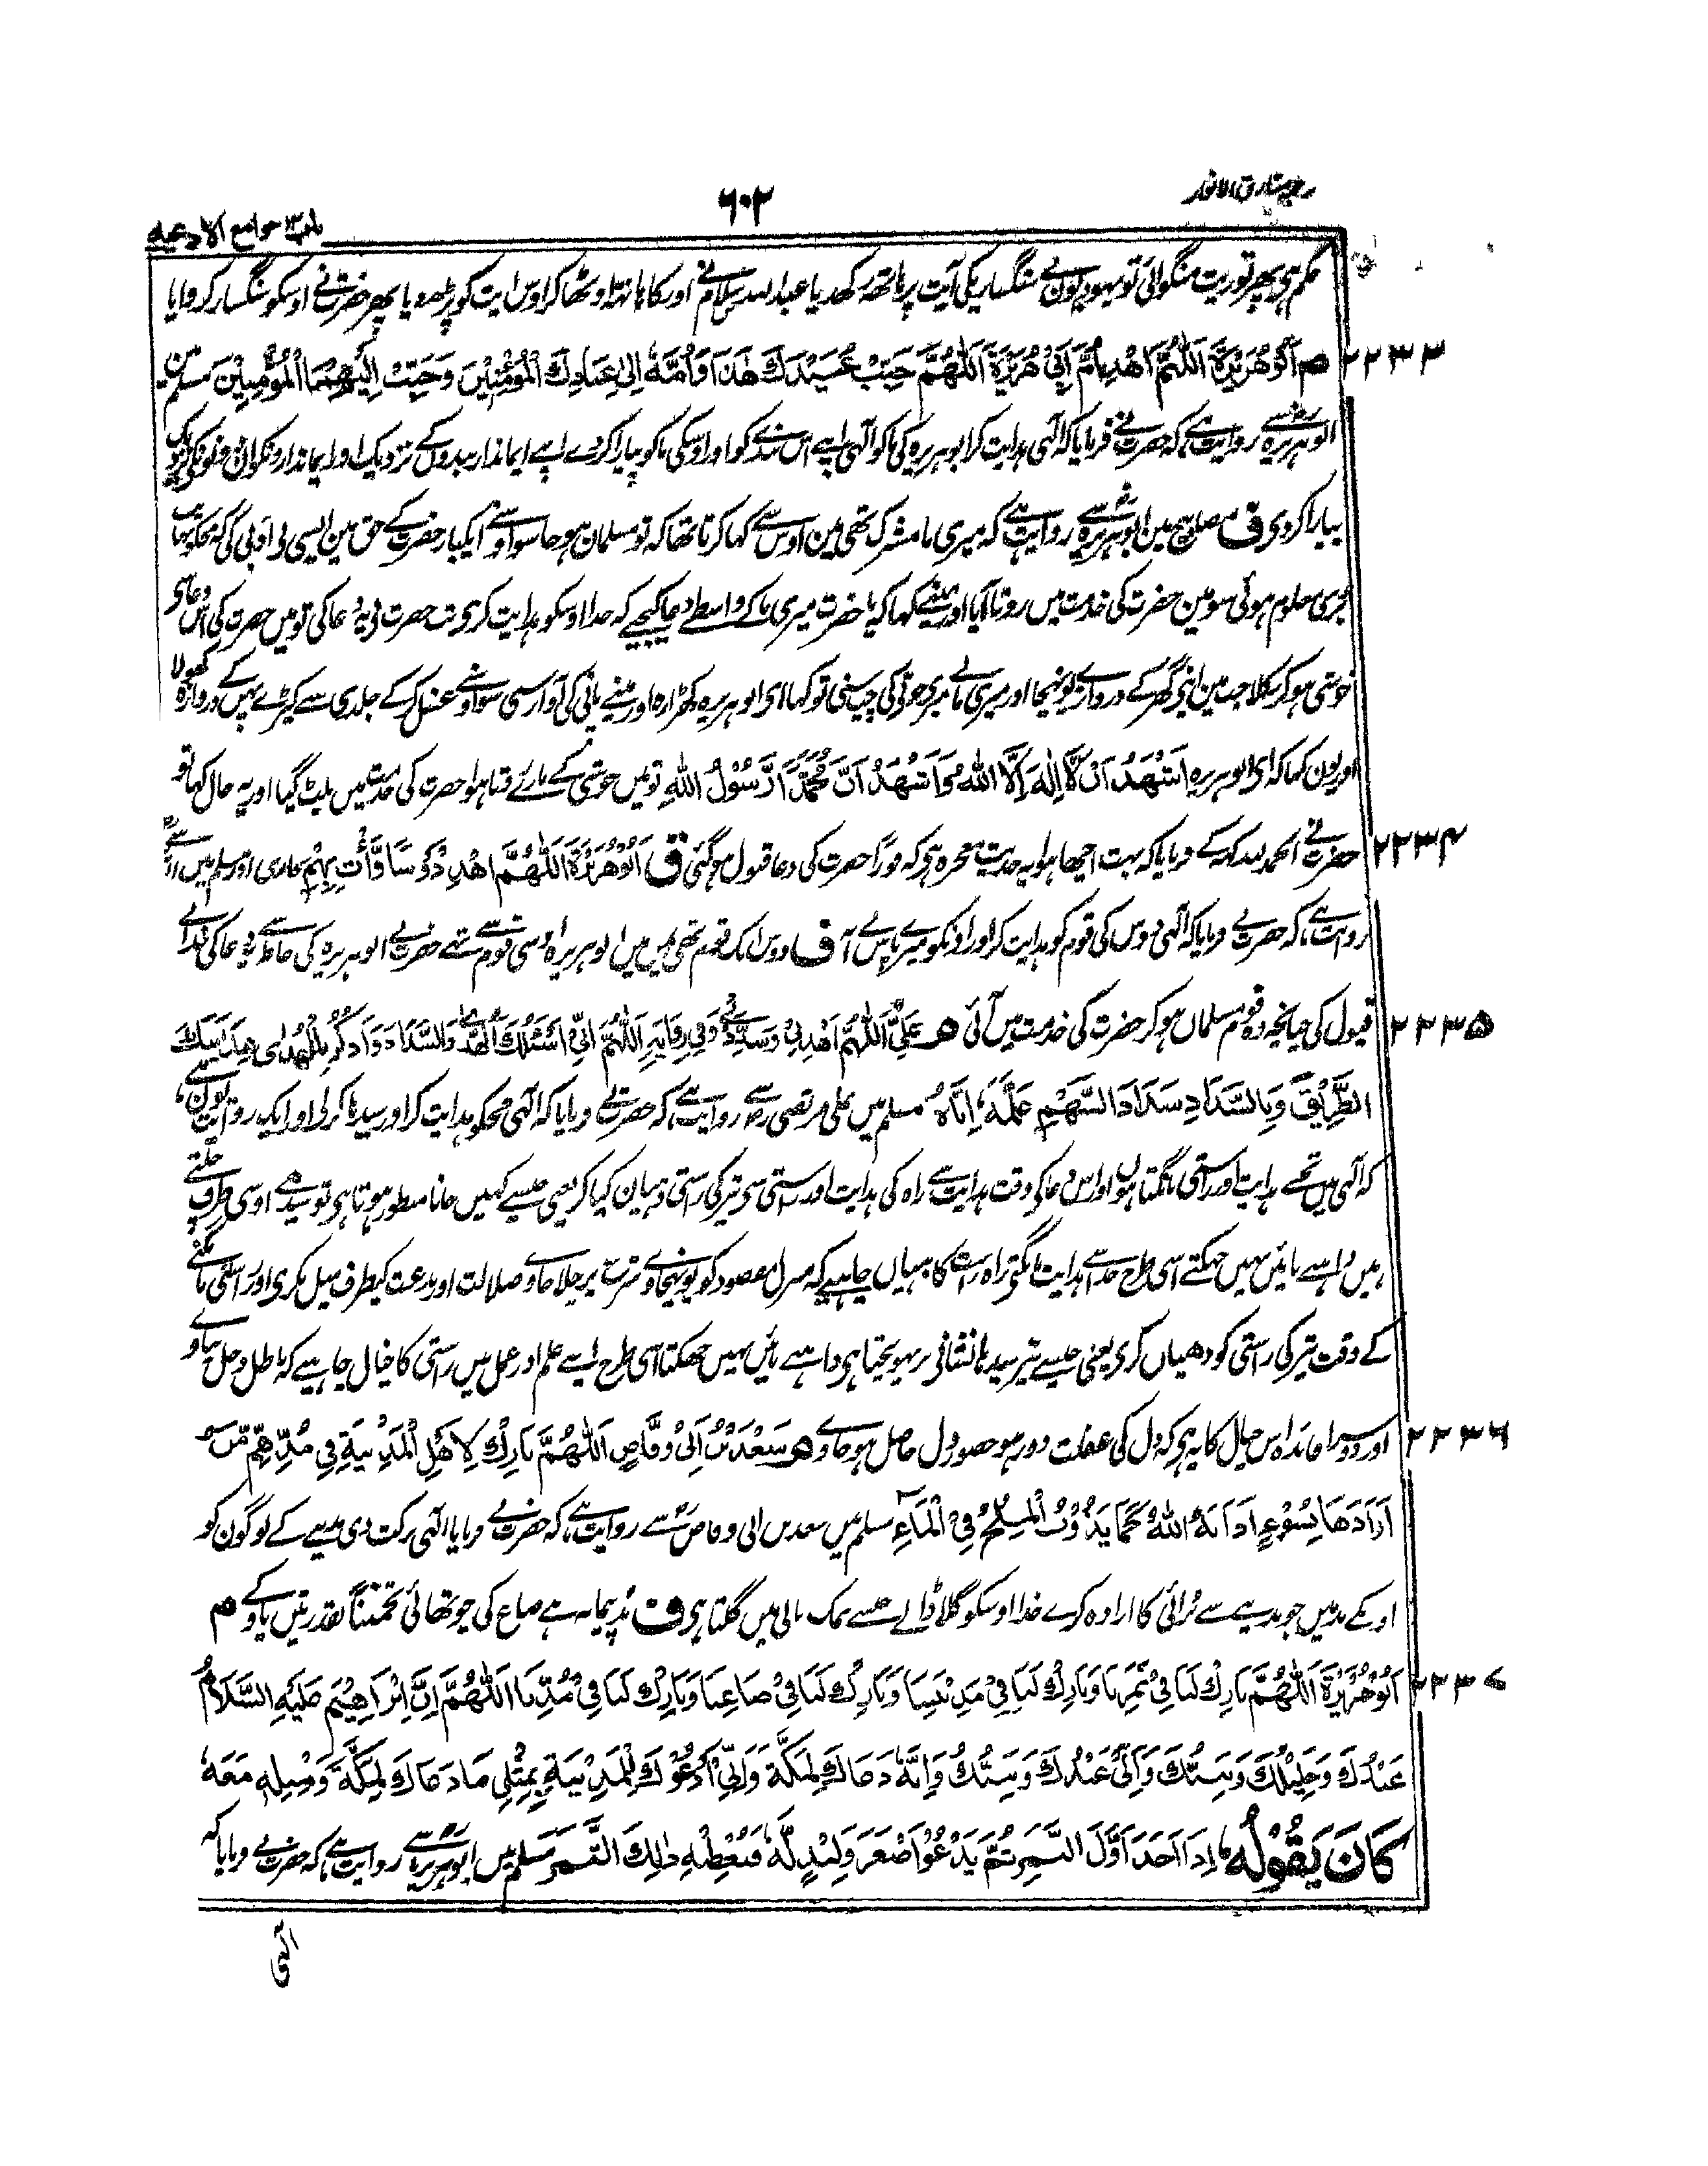 ترجمہ مشارق الانوار
٦٠٢
باب ١٣ جوامع الادعیه
حکم ہی پھر توریت منگوائی تو یہودیون نے سنگساریکی آیت پر ہاتھ رکھدیا عبد اللہ بن سلام نے اوسکا ہاتھ اوٹھا کر اوس ایت کو پڑھوایا پھر حضرت نے اوسکو سنگسار کروایا
٢٢٣٣ م اَبُوْ هُرَيْرَةَ اَللّٰهُمَّ اهْدِ اُمَّ اَبِيْ هُرَيْرَةَ اَللّٰهُمَّ حَبِّبْ عُبَيْدَكَ هٰذَا وَاُمَّهٗ اِلٰى عِبَادِكَ الْمُؤْمِنِيْنَ وَحَبِّبْ اِلَيْهِمَا الْمُؤْمِنِيْنَ مسلم مین
ابو ہریرہ سے روایت ہے کہ حضرت نے فرمایا کہ الٰہی ہدایت کر ابو ہریرہ کی ماکو الٰہی اپنے اس بندے کو اور اوسکی ماکو پیارا کر دے اپنے ایماندار بندوں کے نزدیک اور ایماندارونکو ان دونوں کی نزدیک
پیارا کر دی ف مصابیح مین ابو ہریرہ سے روایت ہے کہ میری ما مشرک تھی مین اوس سے کہا کرتا تھا کہ تو مسلمان ہو جا سو اوسنے ایکبار حضرت کے حق مین ایسی بی ادبی کی کہ مجکو نہایت
بری معلوم ہوئی سو مین حضرت کی خدمت میں روتا آیا اور مینے کہا کہ یا حضرت میری ماکے واسطے دعا کیجیے کہ خدا اوسکو ہدایت کری تب حضرت نی یہ دعا کی تو میں حضرت کی اس دعا سی
خوشی ہو کر نکلا جب مین اپنی گھر کے دروازے پر پونہچا اور میری مانے میری جوتی کی چپ سنی تو کہا ای ابو ہریرہ کھڑا رہ اور مینے پانی کی آواز سنی سو اوسنے غسل کر کے جلدی سے کپڑے پہن کے دروازہ کھولا
اور یون کہا کہ ای ابو ہریرہ اَشْهَدُ اَنْ لَّا اِلٰهَ اِلَّا اللّٰهُ وَاَشْهَدُ اَنَّ مُحَمَّدًا رَّسُوْلُ اللّٰهِ تو میں خوشی کے مارے روتا ہوا حضرت کی خدمت میں پلٹ گیا اور یہ حال کہا تو
٢٢٣٤ حضرت نے الحمد للہ کہہ کے فرمایا کہ بہت اچھا ہوا یہ حدیث معجزہ ہی کہ فوراً حضرت کی دعا قبول ہو گئی ق اَبُوْ هُرَيْرَةَ اَللّٰهُمَّ اهْدِ دَوْسًا وَّأْتِ بِهِمْ بخاری اور مسلم میں اون سے
روایت ہے کہ حضرت نے فرمایا کہ الٰہی دوس کی قوم کو ہدایت کر اور اونکو میرے پاس لے آ ف دوس ایک قوم تھی یمن میں ابو ہریرہ اوسی قوم سے تھے حضرت نے ابو ہریرہ کی خاطر سے یہ دعا کی خدا نے
٢٢٣٥ قبول کی چنانچہ وہ قوم مسلمان ہو کر حضرت کی خدمت میں آئی م عَلِيٌّ اَللّٰهُمَّ اهْدِنِيْ وَسَدِّدْنِيْ وَفِيْ رِوَايَةٍ اَللّٰهُمَّ اِنِّيْ اَسْئَلُكَ الْهُدٰى وَالسَّدَادَ وَاذْكُرْ بِالْهُدٰى هِدَايَتَكَ
الطَّرِيْقَ وَبِالسَّدَادِ سَدَادَ السَّهْمِ عَلَّمَهٗ اِيَّاهُ مسلم میں علی مرتضی رض سے روایت ہے کہ حضرت نے فرمایا کہ الٰہی مجکو ہدایت کر اور سیدھا کر لی اور ایک روایت یون ہے
کہ الٰہی میں تجھسے ہدایت اور راستی مانگتا ہوں اور اس دعا کی وقت ہدایت سے راہ کی ہدایت اور راستی سی تیر کی راستی دہیان کیا کر یعنی جیسے کہیں جانا منظور ہوتا ہی تو سیدھے اوسی طرف چلتے
ہیں داہنے بائیں نہیں جھکتے اسی طرح خدا سے ہدایت مانگی تو راہ راست کا دہیان چاہیے کہ منزل مقصود کو پونہچاوے شریعت پر چلا جاوے ضلالت اور بدعت کیطرف میل نکری اور راستی مانگنے
کے وقت تیر کی راستی کو دھیان کری یعنی جیسے تیر سیدھا نشانی پر پہونچتا ہی داہنے بائیں نہیں جھکتا اسی طرح اپنے علم اور عمل میں راستی کا خیال چاہیے کہ باطل دخل نپاوے
٢٢٣٦ اور دوسرا فائدہ اس خیال کا یہ ہی کہ دل کی غفلت دور ہو حضور دل حاصل ہو جاوے م سَعْدُ بْنُ اَبِيْ وَقَّاصٍ اَللّٰهُمَّ بَارِكْ لِاَهْلِ الْمَدِيْنَةِ فِيْ مُدِّهِمْ مَّنْ
اَرَادَهَا بِسُوْءٍ اَذَابَهُ اللّٰهُ كَمَا يَذُوْبُ الْمِلْحُ فِي الْمَاءِ مسلم میں سعد بن ابی وقاص سے روایت ہے کہ حضرت نے فرمایا الٰہی برکت دی مدینے کے لوگون کو
اونکے مد میں جو مدینے سے برائی کا ارادہ کرے خدا اوسکو گلا ڈالے جیسے نمک پانی میں گلتا ہی ف مد پیمانہ ہے صاع کی چوتھائی تخمیناً بقدر تین پاو کے م
٢٢٣٧ اَبُوْ هُرَيْرَةَ اَللّٰهُمَّ بَارِكْ لَنَا فِيْ ثَمَرِنَا وَبَارِكْ لَنَا فِيْ مَدِيْنَتِنَا وَبَارِكْ لَنَا فِيْ صَاعِنَا وَبَارِكْ لَنَا فِيْ مُدِّنَا اَللّٰهُمَّ اِنَّ اِبْرَاهِيْمَ عَلَيْهِ السَّلَامُ
عَبْدُكَ وَخَلِيْلُكَ وَنَبِيُّكَ وَاِنِّيْ عَبْدُكَ وَنَبِيُّكَ وَاِنَّهٗ دَعَاكَ لِمَكَّةَ وَاِنِّيْ اَدْعُوْكَ لِلْمَدِيْنَةِ بِمِثْلِ مَا دَعَاكَ لِمَكَّةَ وَمِثْلِهٖ مَعَهٗ
كَانَ يَقُوْلُهٗ اِذَا اَخَذَ اَوَّلَ الثَّمَرِ ثُمَّ يَدْعُوْ اَصْغَرَ وَلِيْدٍ لَّهٗ فَيُعْطِيْهِ ذٰلِكَ الثَّمَرَ مسلم میں ابو ہریرہ سے روایت ہے کہ حضرت نے فرمایا کہ
الٰہی